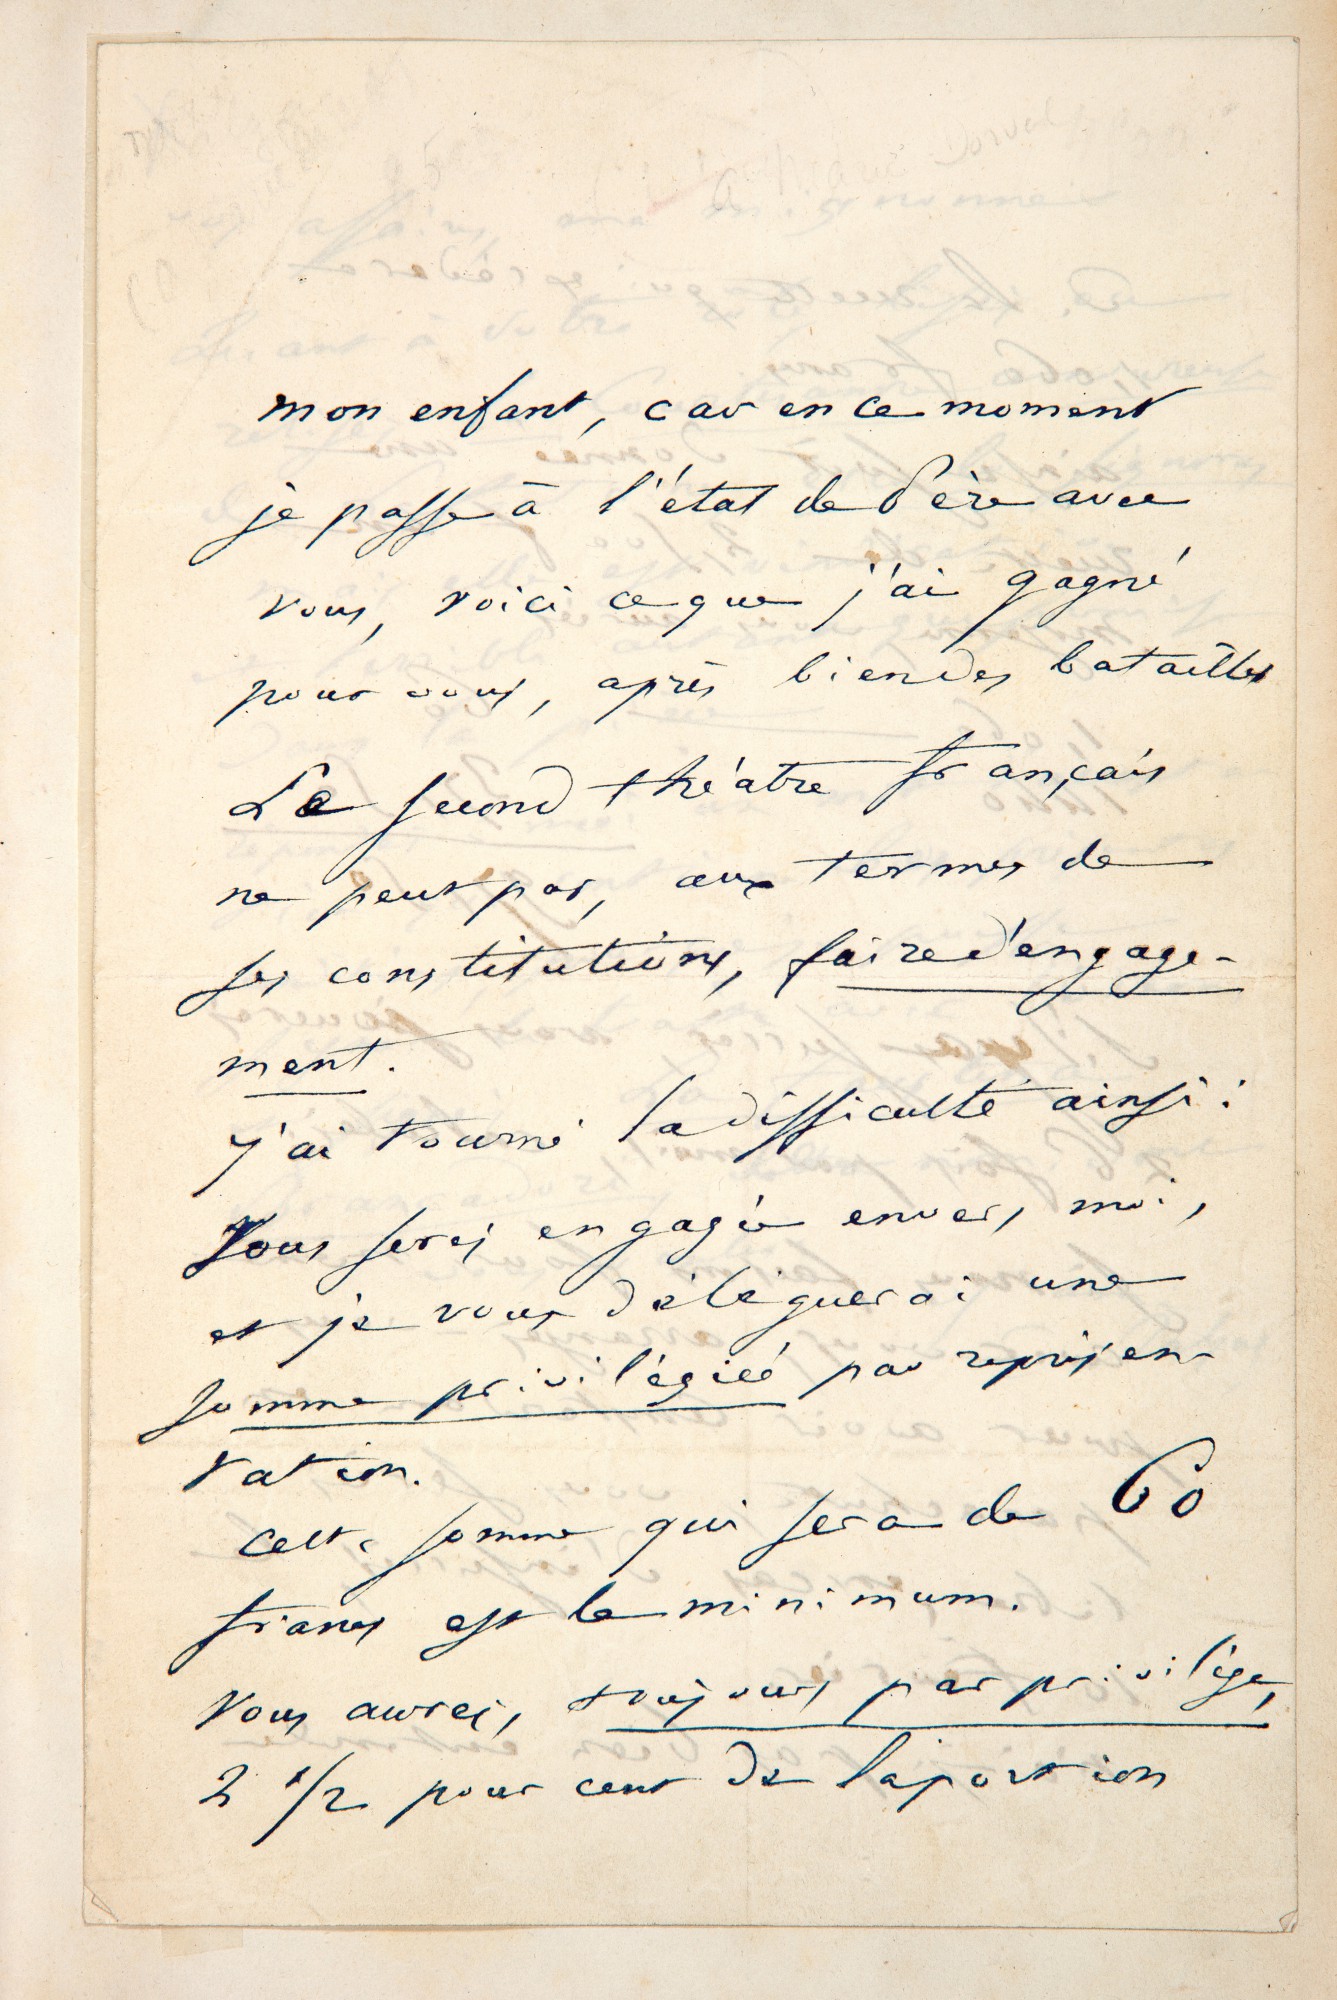 mon enfant, car en ce moment
je passe à l'état de Père avec
vous, voici ce que j'ai gagné
pour vous, après bien des batailles
Le second théâtre français
ne peut pas, aux termes de
ses constitutions, faire d'engage-
ment.
J'ai tourné la difficulté ainsi :
Vous serez engagée envers moi,
et je vous déléguerai une
somme privilégiée par représen-
tation.
cette somme qui sera de 60
francs est le minimum.
Vous aurez, toujours par privilège,
2 1/2 pour cent de la portion